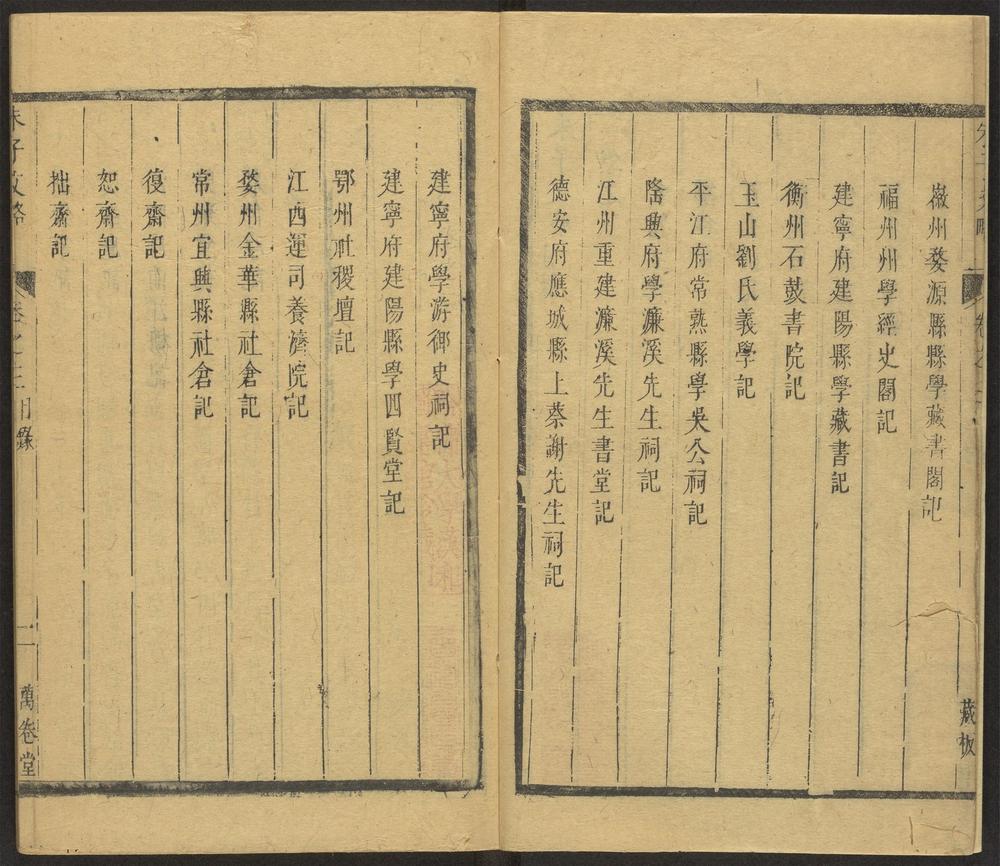 徽州婺源縣縣學藏書閣記
福州州學經史閣記
建寧府建陽縣學藏書記
衡州石鼓書院記
玉山劉氏義學記
平江府常熟縣學吳公祠記
隆興府學濂溪先生祠記
江州重建濂溪先生書堂記
德安府應城縣上蔡謝先生祠記
藏板
建寧府學游御史祠記
建寧府建陽縣學四賢堂記
鄂州社稷壇記
江西運司養濟院記
婺州金華縣社倉記
常州宜興縣社倉記
復齋記
恕齋記
拙齋記
朱子文略
卷之三目錄
二
萬卷堂